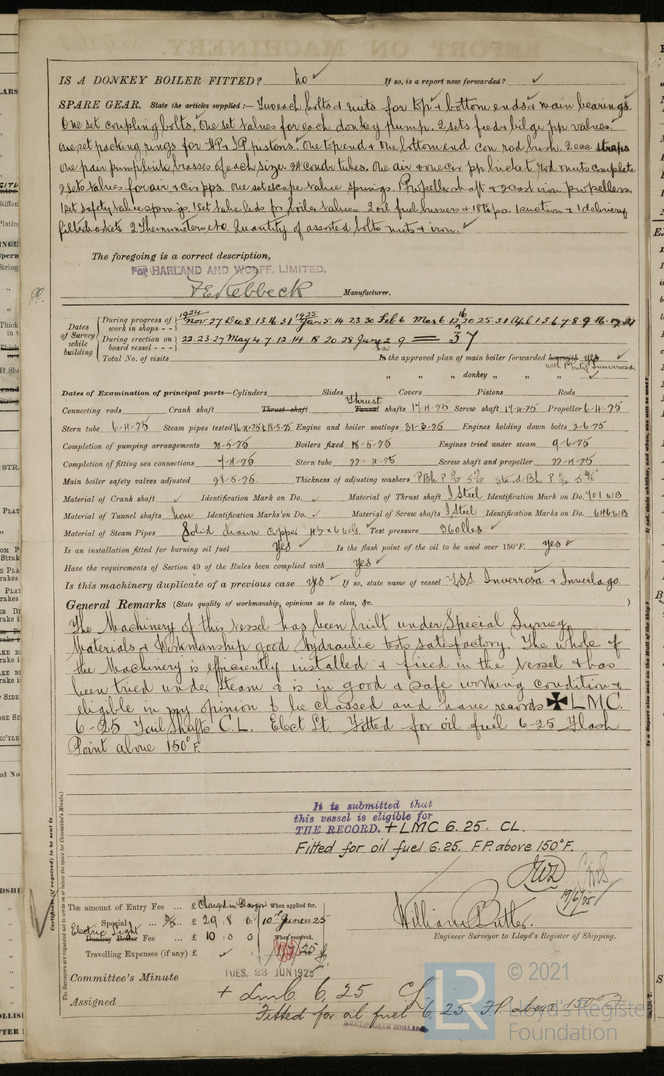 IS A DONKEY BOILER FITTED? no ✓ If so, is a report now forwarded? ✓
SPARE GEAR. State the articles supplied:— Two each bolts & nuts for top & bottom ends & main bearings.
One set coupling bolts, One set valves for each donkey pump. 2 sets feed & bilge pp valves.
One set packing rings for HP & IP pistons. One top end & one bottom end con rod bush. 2 ecc straps
One pair pump link brasses of each size. condr tubes. One air & one cir pp bucket rod & nuts complete
2 sets valves for air & cir pps. One set escape valve springs. Propeller shaft & cast iron propellers.
1 set safety valve springs. 1 set valve lids for boiler valves 2 oil fuel burners & 18 tips. 1 suction & 1 delivery
filter baskets 2 Thermometers &c. Quantity of assorted bolts nuts & iron.
The foregoing is a correct description,
FOR HARLAND AND WOLFF, LIMITED.
F E Rebbeck Manufacturer.
Dates of Survey while building
During progress of work in shops - - 1924 Nov 27 Dec 8 13 16 31 1925 Jan 5 14 23 30 Feb 6 Mar 6 12 16 20 25 31 Apl 1 3 6 7 8 9 16 17 21
During erection on board vessel - - - 22 23 27 May 4 7 12 14 18 20 28 June 2 9 = 37
Total No. of visits Is the approved plan of main boiler forwarded herewith yes
" " " donkey " " " ✓
Dates of Examination of principal parts—Cylinders Slides Covers Pistons Rods
Connecting rods Crank shaft Thrust shaft Thrust Tunnel shafts 17-4-25 Screw shaft 17-4-25 Propeller 6-4-25
Stern tube 6-4-25 Steam pipes tested Engine and boiler seatings 31-3-25 Engines holding down bolts 2-6-25
Completion of pumping arrangements 20-5-25 Boilers fixed 18-5-25 Engines tried under steam 9-6-25
Completion of fitting sea connections 7-4-25 Stern tube 22-4-25 Screw shaft and propeller 22-4-25
Main boiler safety valves adjusted 28-5-25 Thickness of adjusting washers
Material of Crank shaft ✓ Identification Mark on Do. ✓ Material of Thrust shaft I Steel Identification Mark on Do. 701 WB
Material of Tunnel shafts none Identification Marks on Do. ✓ Material of Screw shafts I Steel Identification Marks on Do. 6416 WB
Material of Steam Pipes Solid drawn copper Test pressure 360 lbs ✓
Is an installation fitted for burning oil fuel yes ✓ Is the flash point of the oil to be used over 150°F. yes ✓
Have the requirements of Section 49 of the Rules been complied with yes ✓
Is this machinery duplicate of a previous case yes ✓ If so, state name of vessel T.S.S. Inverrosa & Inverlago.
General Remarks (State quality of workmanship, opinions as to class, &c.)
The Machinery of this vessel has been built under Special Survey,
Materials & Workmanship good Hydraulic tests satisfactory. The whole of
the Machinery is efficiently installed & fixed in the vessel & has
been tried under Steam & is in good & safe working condition &
eligible in my opinion to be classed and have records ✠ LMC.
6-25 Tail Shafts C.L. Elect Lt. Fitted for oil fuel 6-25 Flash
Point above 150°F.
It is submitted that
this vessel is eligible for
THE RECORD. + LMC 6.25. CL.
Fitted for oil fuel 6.25. F.P. above 150°F.
19/6/25
The amount of Entry Fee ... £ Charged in Glasgow When applied for,
Special ... £ 29 : 8 : 0 10th June 1925
Electric Light Donkey Boiler Fee ... £ 10 : 0 : 0 When received,
Travelling Expenses (if any) £ ✓ 25
William Butler.
Engineer Surveyor to Lloyd's Register of Shipping.
Committee's Minute TUES. 23 JUN 1925
Assigned + LMC 6.25 CL
Fitted for oil fuel 6.25 F.P. above 150°F
LR © 2021
Lloyd's Register
Foundation